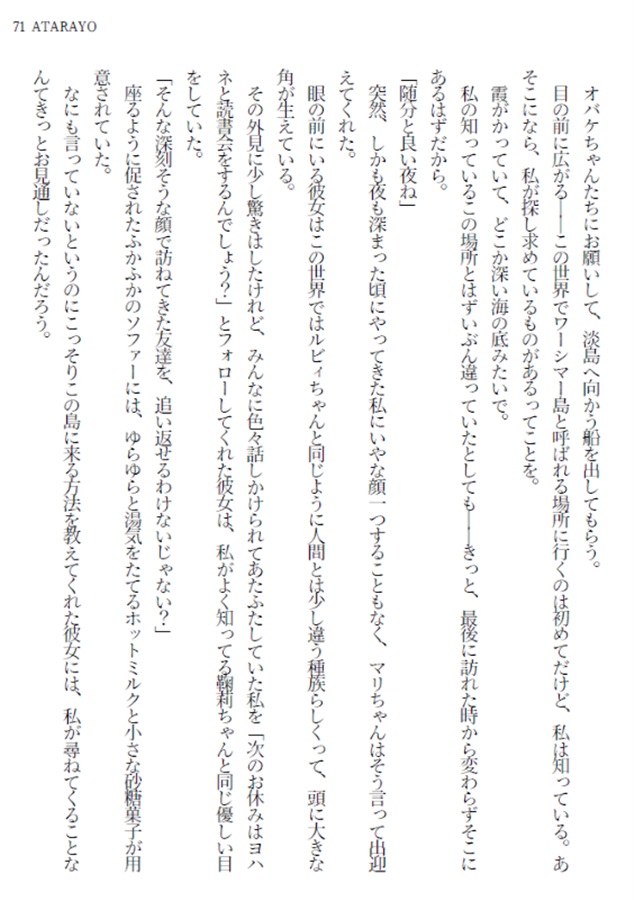 71 ATARAYO
オバケちゃんたちにお願いして、淡島へ向かう船を出してもらう。
目の前に広がる――この世界でワーシマー島と呼ばれる場所に行くのは初めてだけど、私は知っている。あ
そこになら、私が探し求めているものがあるってことを。
霞がかっていて、どこか深い海の底みたいで。
私の知っているこの場所とはずいぶん違っていたとしても――きっと、最後に訪れた時から変わらずそこに
あるはずだから。
「随分と良い夜ね」
突然、しかも夜も深まった頃にやってきた私にいやな顔一つすることもなく、マリちゃんはそう言って出迎
えてくれた。
眼の前にいる彼女はこの世界ではルビィちゃんと同じように人間とは少し違う種族らしくって、頭に大きな
角が生えている。
その外見に少し驚きはしたけれど、みんなに色々話しかけられてあたふたしていた私を「次のお休みはヨハ
ネと読書会をするんでしょう？」とフォローしてくれた彼女は、私がよく知ってる鞠莉ちゃんと同じ優しい目
をしていた。
「そんな深刻そうな顔で訪ねてきた友達を、追い返せるわけないじゃない？」
座るように促されたふかふかのソファーには、ゆらゆらと湯気をたてるホットミルクと小さな砂糖菓子が用
意されていた。
なにも言っていないというのにこっそりこの島に来る方法を教えてくれた彼女には、私が尋ねてくることな
んてきっとお見通しだったんだろう。